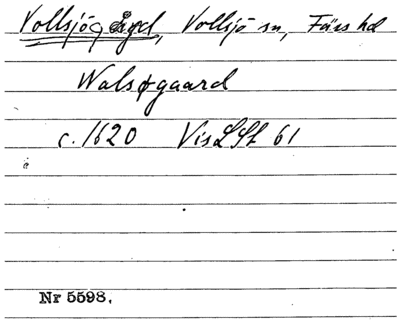 Vollsjögård, Vollsjö sn, Färs hd
Walsøgaard
c. 1620 VisLSt 61
Nr 5598.